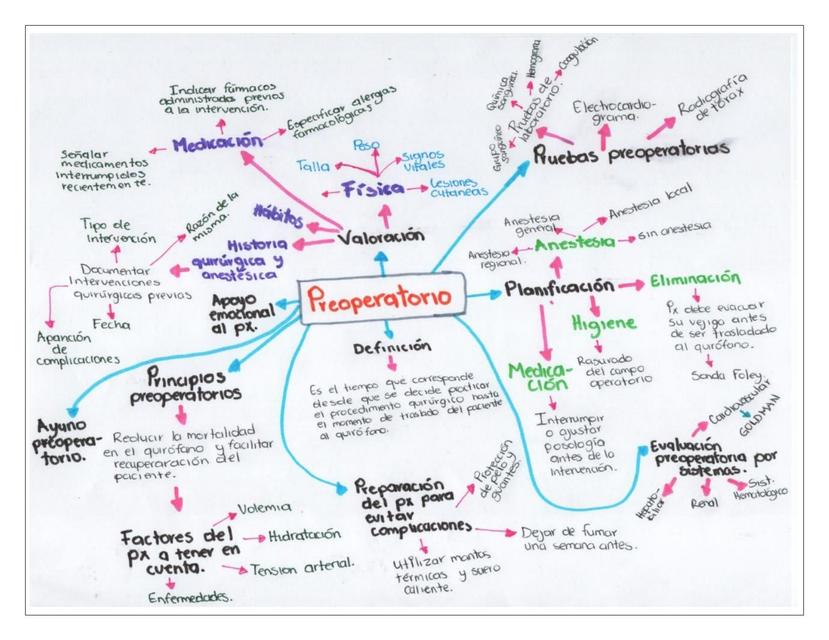 Indicar fármacos
administrados previos
a la intervención.
Especificar alergas
farmacológicas
Medicación
Señalar
medicamentos
interrumpidos
recientemente.
Peso
Talla
Signos
vitales
Física
Lesiones
cutáneas
Hábitos
Valoración
Historia
quirúrgica y
anestésica
Razón de la
misma.
Tipo de
intervención
Documentar
Intervenciones
quirúrgicas previas
Fecha
Aparición
de
complicaciones
Química
sanguínea.
Hemograma
Coagulación
Pruebas de
laboratorio.
Grupo
sanguíneo
Electrocardio-
grama.
Radiografía
de tórax
Pruebas preoperatorias
Anestesia
general
Anestesia local
Anestesia
sin anestesia
Anestesia
regional.
Planificación
Eliminación
Px debe evacuar
su vejiga antes
de ser trasladado
al quirófano.
Sonda Foley.
Higiene
Rasurado
del campo
operatorio
Medica-
ción
Interrumpir
o ajustar
posología
antes de la
intervención.
Preoperatorio
Apoyo
emocional
al px.
Definición
Es el tiempo que corresponde
desde que se decide practicar
el procedimiento quirúrgico hasta
el momento de traslado del paciente
al quirófano.
Principios
preoperatorios
Reducir la mortalidad
en el quirófano y facilitar
recuperaración del
paciente.
Ayuno
preopera-
torio.
Factores del
px a tener en
cuenta.
Volemia
Hidratación
Tension arterial.
Enfermedades.
Preparación
del px para
evitar
complicaciones
Protección
de pelo y
guantes.
Dejar de fumar
una semana antes.
Utilizar mantas
térmicas y suero
caliente.
Evaluación
preoperatoria por
sistemas.
Cardiovascular
GOLDMAN
Sist.
Hematológico
Renal
Hepato-
biliar